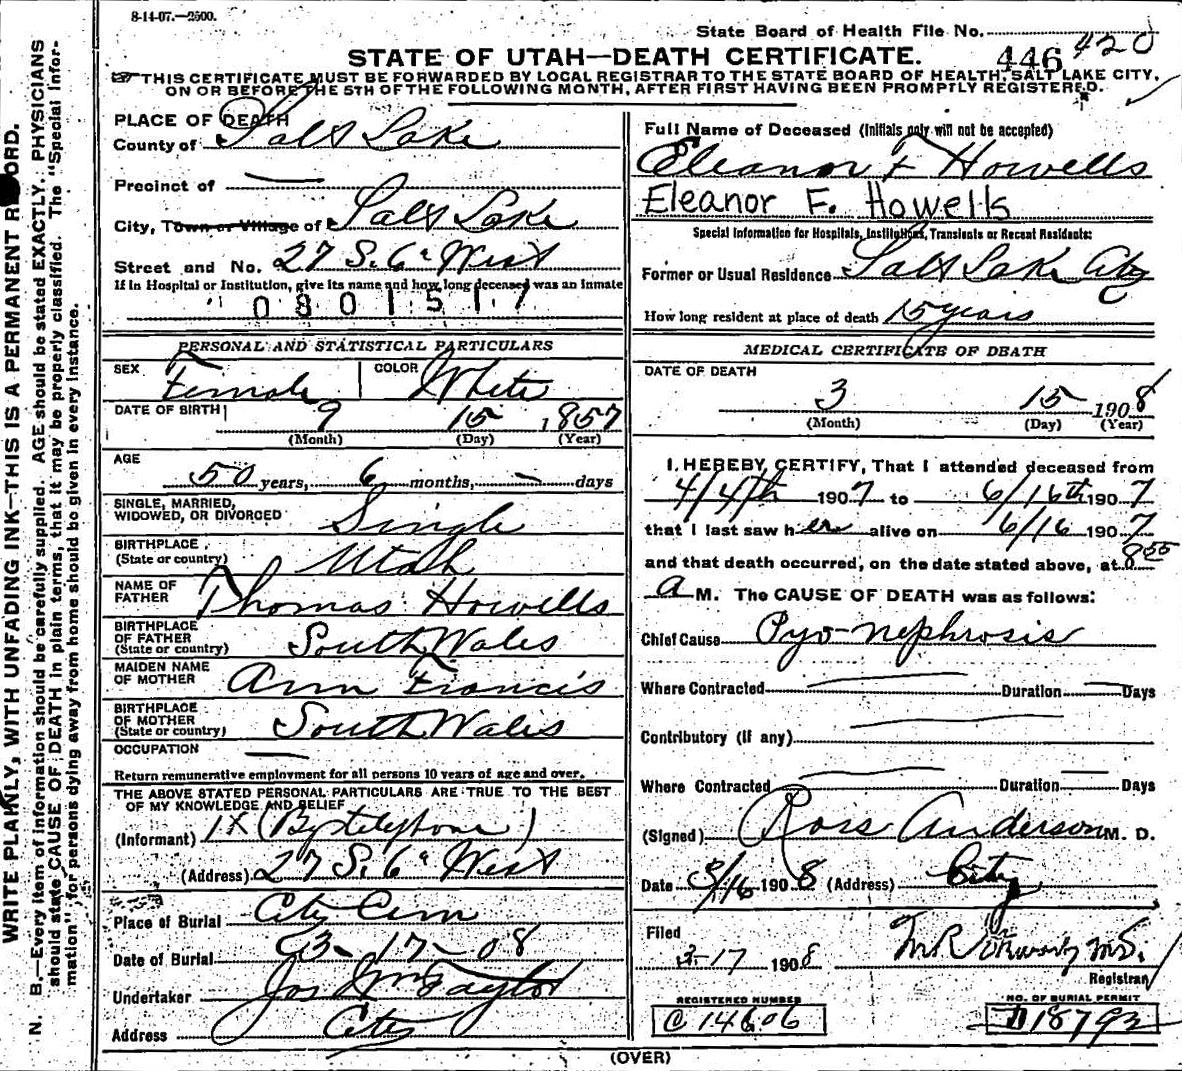 8-14-07.—2500.
State Board of Health File No. 420
STATE OF UTAH—DEATH CERTIFICATE.
446
THIS CERTIFICATE MUST BE FORWARDED BY LOCAL REGISTRAR TO THE STATE BOARD OF HEALTH, SALT LAKE CITY,
ON OR BEFORE THE 5TH OF THE FOLLOWING MONTH, AFTER FIRST HAVING BEEN PROMPTLY REGISTERED.
PLACE OF DEATH
County of Salt Lake
Precinct of —
City, Town or Village of Salt Lake
Street and No. 27 S. 6" West
If in Hospital or Institution, give its name and how long deceased was an inmate
0801517
PERSONAL AND STATISTICAL PARTICULARS
SEX Female COLOR White
DATE OF BIRTH 9 15 1857
(Month) (Day) (Year)
AGE
50 years, 6 months, — days
SINGLE, MARRIED,
WIDOWED, OR DIVORCED Single
BIRTHPLACE
(State or country) Utah
NAME OF
FATHER Thomas Howells
BIRTHPLACE
OF FATHER
(State or country) South Wales
MAIDEN NAME
OF MOTHER Ann Francis
BIRTHPLACE
OF MOTHER
(State or country) South Wales
OCCUPATION —
Return remunerative employment for all persons 10 years of age and over.
THE ABOVE STATED PERSONAL PARTICULARS ARE TRUE TO THE BEST
OF MY KNOWLEDGE AND BELIEF
(Informant) (By telephone)
(Address) 27 S. 6" West
Place of Burial City Cem
Date of Burial 3-17-08
Undertaker Jos Wm Taylor
Address City
Full Name of Deceased (Initials only will not be accepted)
Eleanor F Howells
Eleanor F. Howells
Special Information for Hospitals, Institutions, Transients or Recent Residents:
Former or Usual Residence Salt Lake City
How long resident at place of death 15 years
MEDICAL CERTIFICATE OF DEATH
DATE OF DEATH
3 15 1908
(Month) (Day) (Year)
I HEREBY CERTIFY, That I attended deceased from
4/4th 1907 to 6/16th 1907
that I last saw her alive on 6/16 1907
and that death occurred, on the date stated above, at 8 55
A M. The CAUSE OF DEATH was as follows:
Chief Cause Pyo-nephrosis
Where Contracted — Duration — Days
Contributory (if any) —
Where Contracted — Duration — Days
(Signed) Ross Anderson M. D.
Date 3/16 1908 (Address) City
Filed
3-17 1908
Registrar
REGISTERED NUMBER
C 14606
NO. OF BURIAL PERMIT
D 18792
(OVER)
WRITE PLAINLY, WITH UNFADING INK—THIS IS A PERMANENT RECORD.
N. B.—Every item of information should be carefully supplied. AGE should be stated EXACTLY. PHYSICIANS
should state CAUSE OF DEATH in plain terms, that it may be properly classified. The "Special Infor-
mation" for persons dying away from home should be given in every instance.